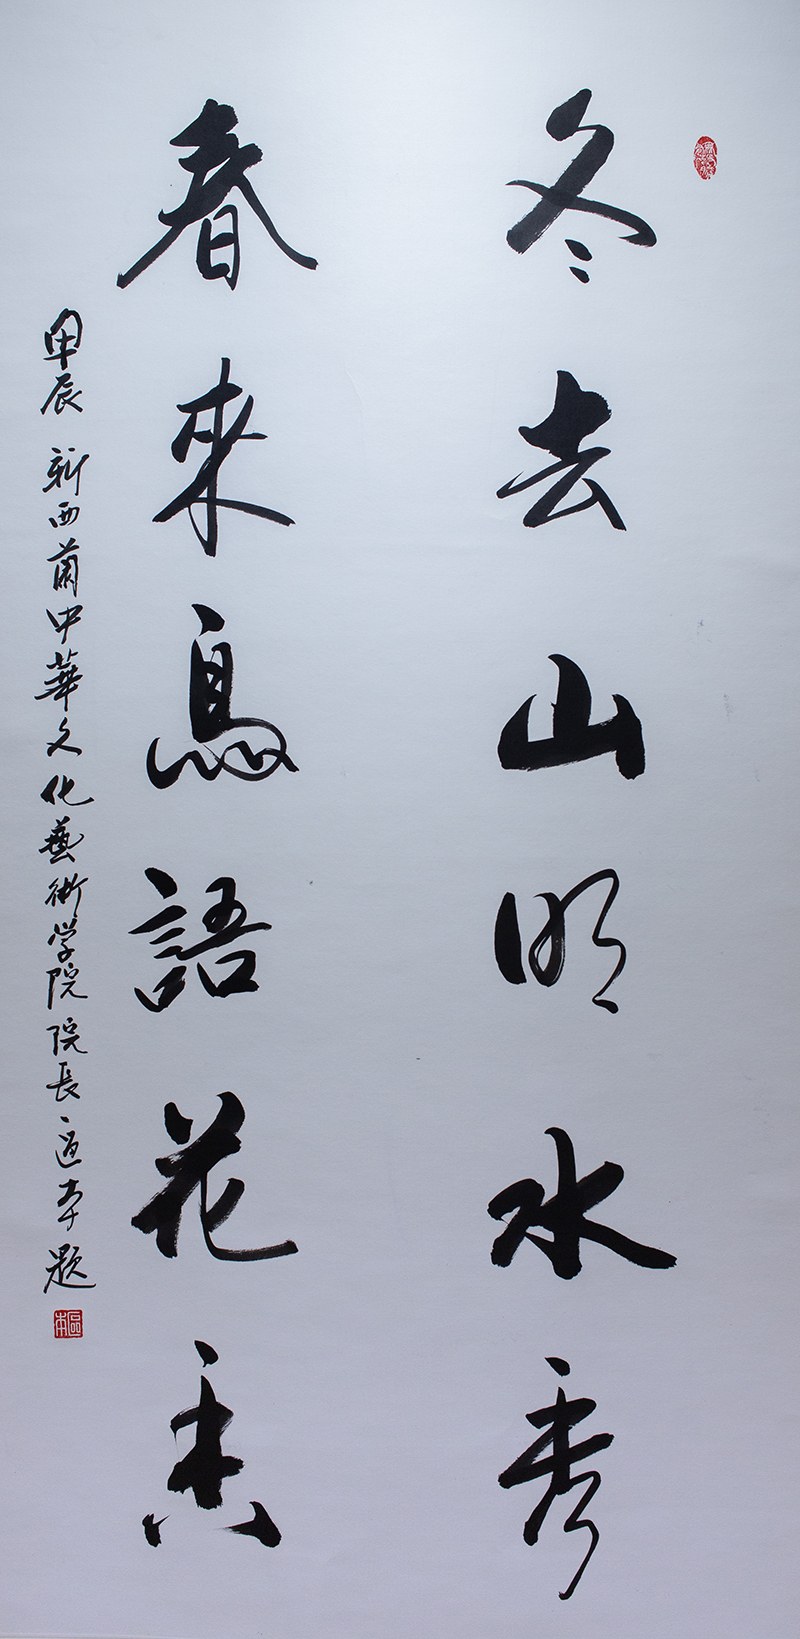 冬去山明水秀
春來鳥語花香
甲辰 新西蘭中華文化藝術学院院長區本題
區本